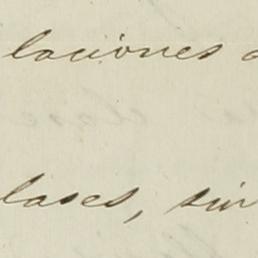 laciones
lases, sin